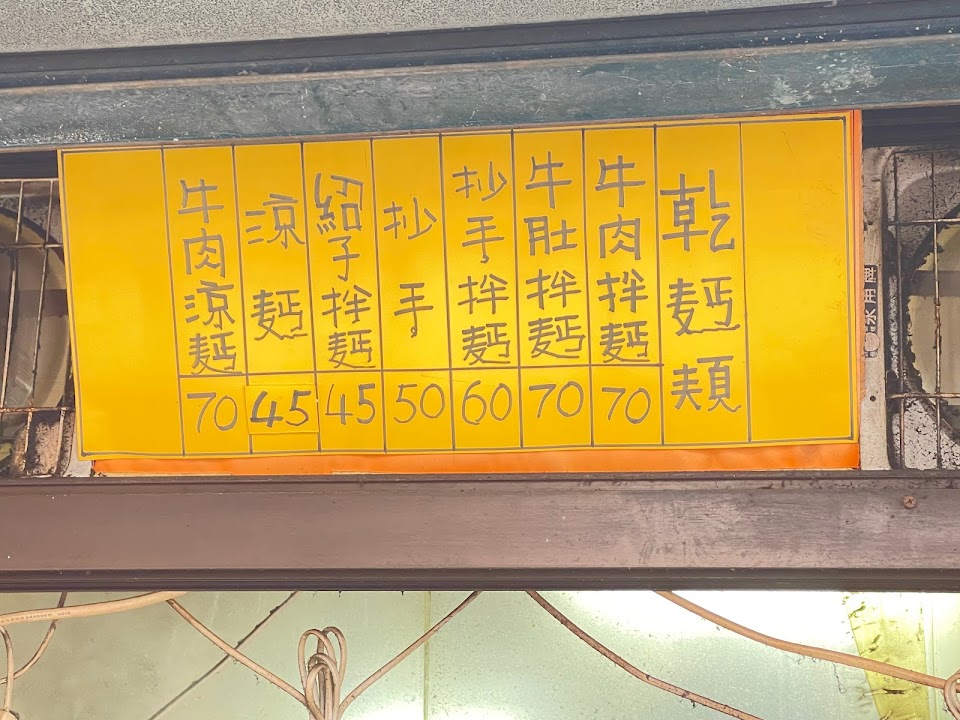 乾麵類
牛肉拌麵 70
牛肚拌麵 70
抄手拌麵 60
抄手 50
紹子拌麵 45
涼麵 45
牛肉涼麵 70